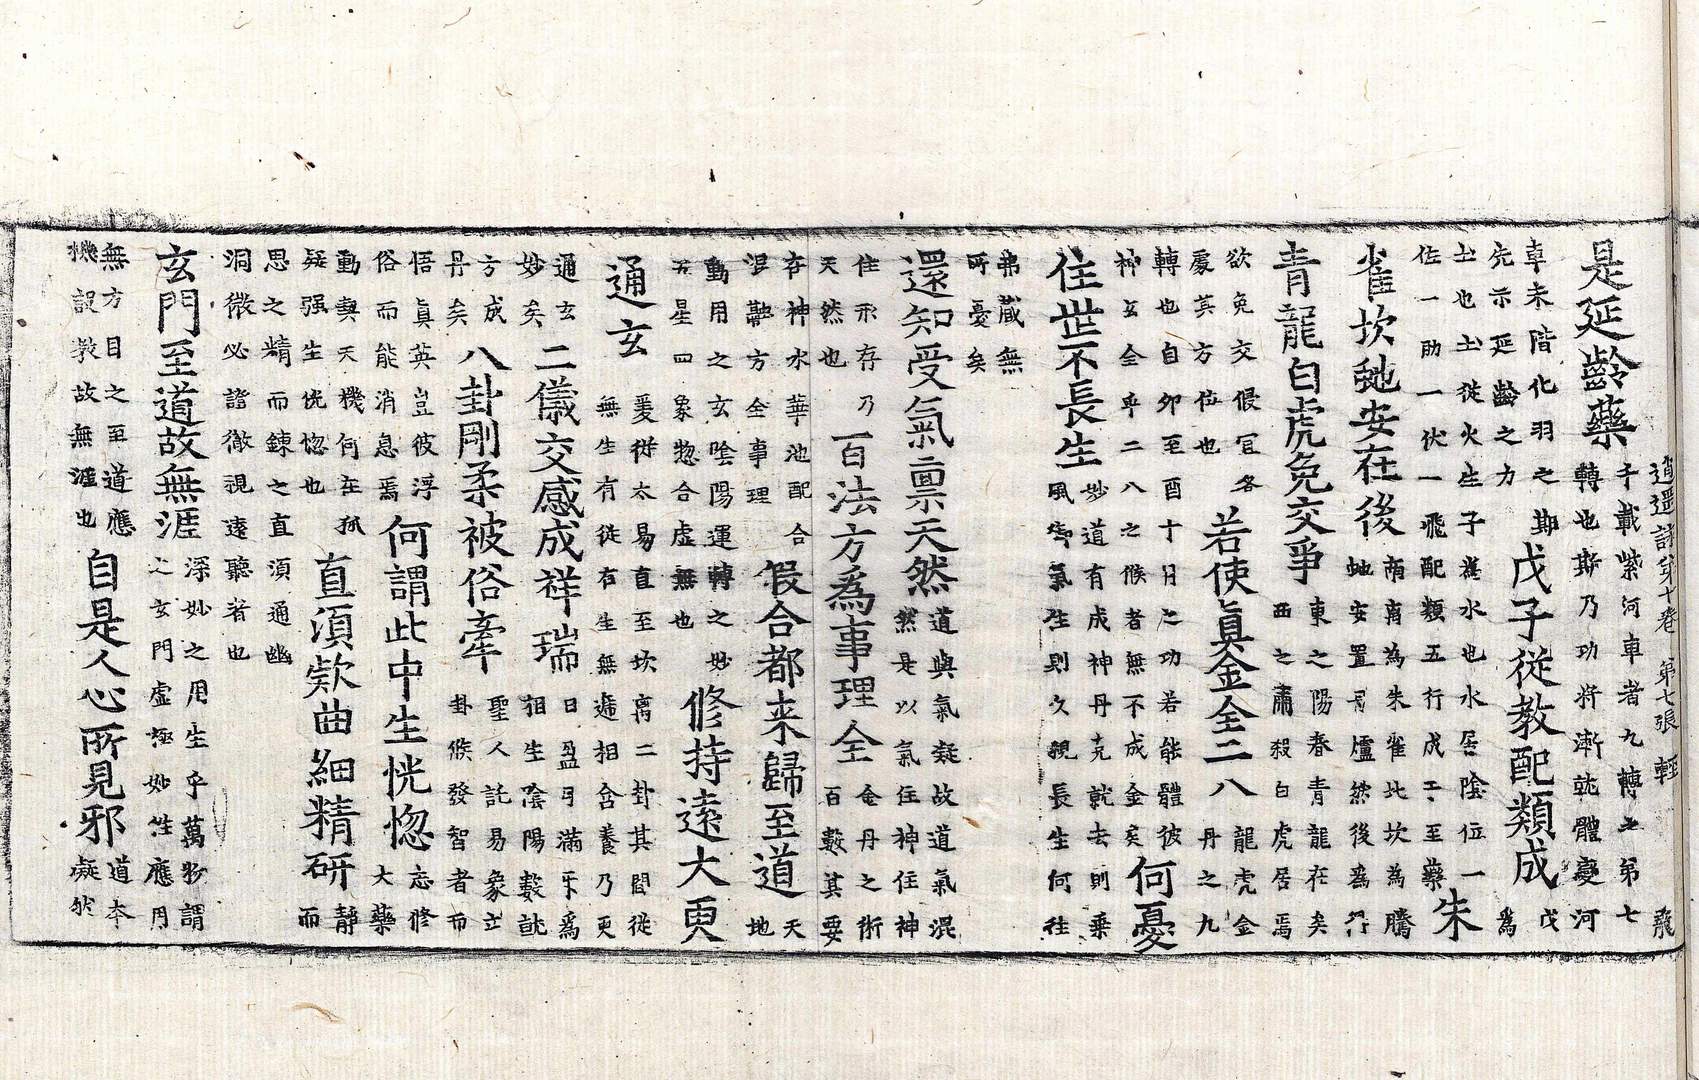 逍遥詠第十卷　第七張　輕
是延齡藥
千載紫河車者九轉之第七
轉也斯乃功將漸就體變河
車未階化羽之斯
先示延齡之力
戊子從教配類成
戊
為
土也土從火生子為水也水居陰位一
佐一助一伏一飛配類五行成工至藥
朱
雀坎虵安在後
南方為朱雀北坎為騰
虵安置爐然後為行
青龍白虎免交爭
東之陽春青龍在矣
西之肅殺白虎居焉
欲免交侵宜各
處其方位也
若使真金全二八
龍虎金
丹之九
轉也自卯至酉十月之功若能體彼
神玄全乎二八之候者無不成金矣
何憂
住世不長生
妙道有成神丹克就去則乘
風馭氣住則久視長生何往
弗臧無
所憂矣
還知受氣禀天然
道與氣凝故道氣混
然是以氣住神住神
住形存乃
天然也
百法方為事理全
金丹之術
百數其要
在神水華池配合
混融方全事理
假合都来歸至道
天
地
動用之玄陰陽運轉之妙
五星四象惣合虛無也
修持遠大更
通玄
爰從太易直至坎离二卦其間從
無生有從有生無遞相含養乃更
通玄
妙矣
二儀交感成祥瑞
日盈月滿不為
相生陰陽數就
方成
丹矣
八卦剛柔被俗牽
聖人託易象立
卦候發智者而
悟真英豈彼浮
俗而能消息焉
何謂此中生恍惚
志修
大藥
動契天機何在孤
疑强生恍惚也
直須欵曲細精研
靜
而
思之精而錬之直須通幽
洞微必諮徹視遠聽者也
玄門至道故無涯
深妙之用生乎萬物謂
之玄門虛極妙性應用
無方目之至道應
機設教故無涯也
自是人心所見邪
道本
凝然